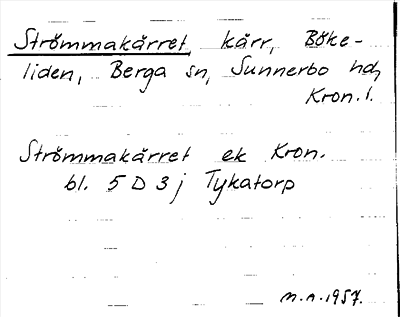 Strömmakärret, kärr, Böke-
liden, Berga sn, Sunnerbo hd,
Kron. l.
Strömmakärret ek Kron.
bl. 5 D 3 j Tykatorp
M.A. 1957.